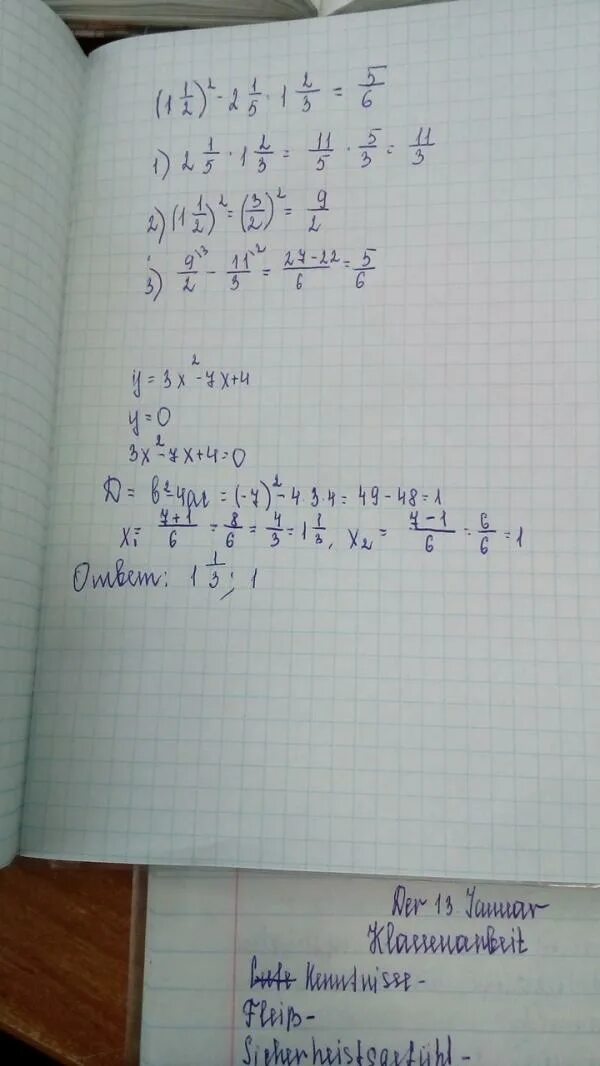 (1 1/2)² - 2 1/5 · 1 2/3 = 5/6
1) 2 1/5 · 1 2/3 = 11/5 · 5/3 = 11/3
2) (1 1/2)² = (3/2)² = 9/2
3) 9\3/2 - 11\2/3 = 27-22/6 = 5/6
y = 3x² - 7x + 4
y = 0
3x² - 7x + 4 = 0
D = b² - 4ac = (-7)² - 4·3·4 = 49 - 48 = 1
x₁ = 7+1/6 = 8/6 = 4/3 = 1 1/3, x₂ = 7-1/6 = 6/6 = 1
Ответ: 1 1/3; 1
Der 13 Januar
Klassenarbeit
Kenntnisse -
Fleiß -
Sicherheistsgefühl -